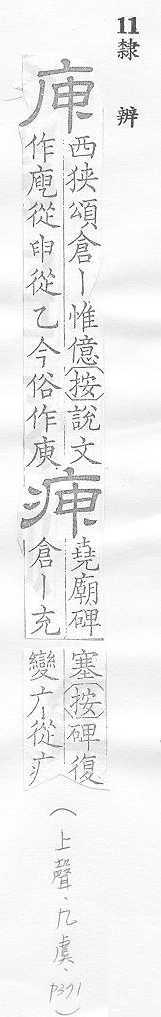 11
隸辨
庾
西狹頌倉丨惟億(按)說文
作庾從申從乙今俗作庾
㾱
堯廟碑
倉丨充
塞(按)碑復
變广從疒
(上聲·九虞·p371)